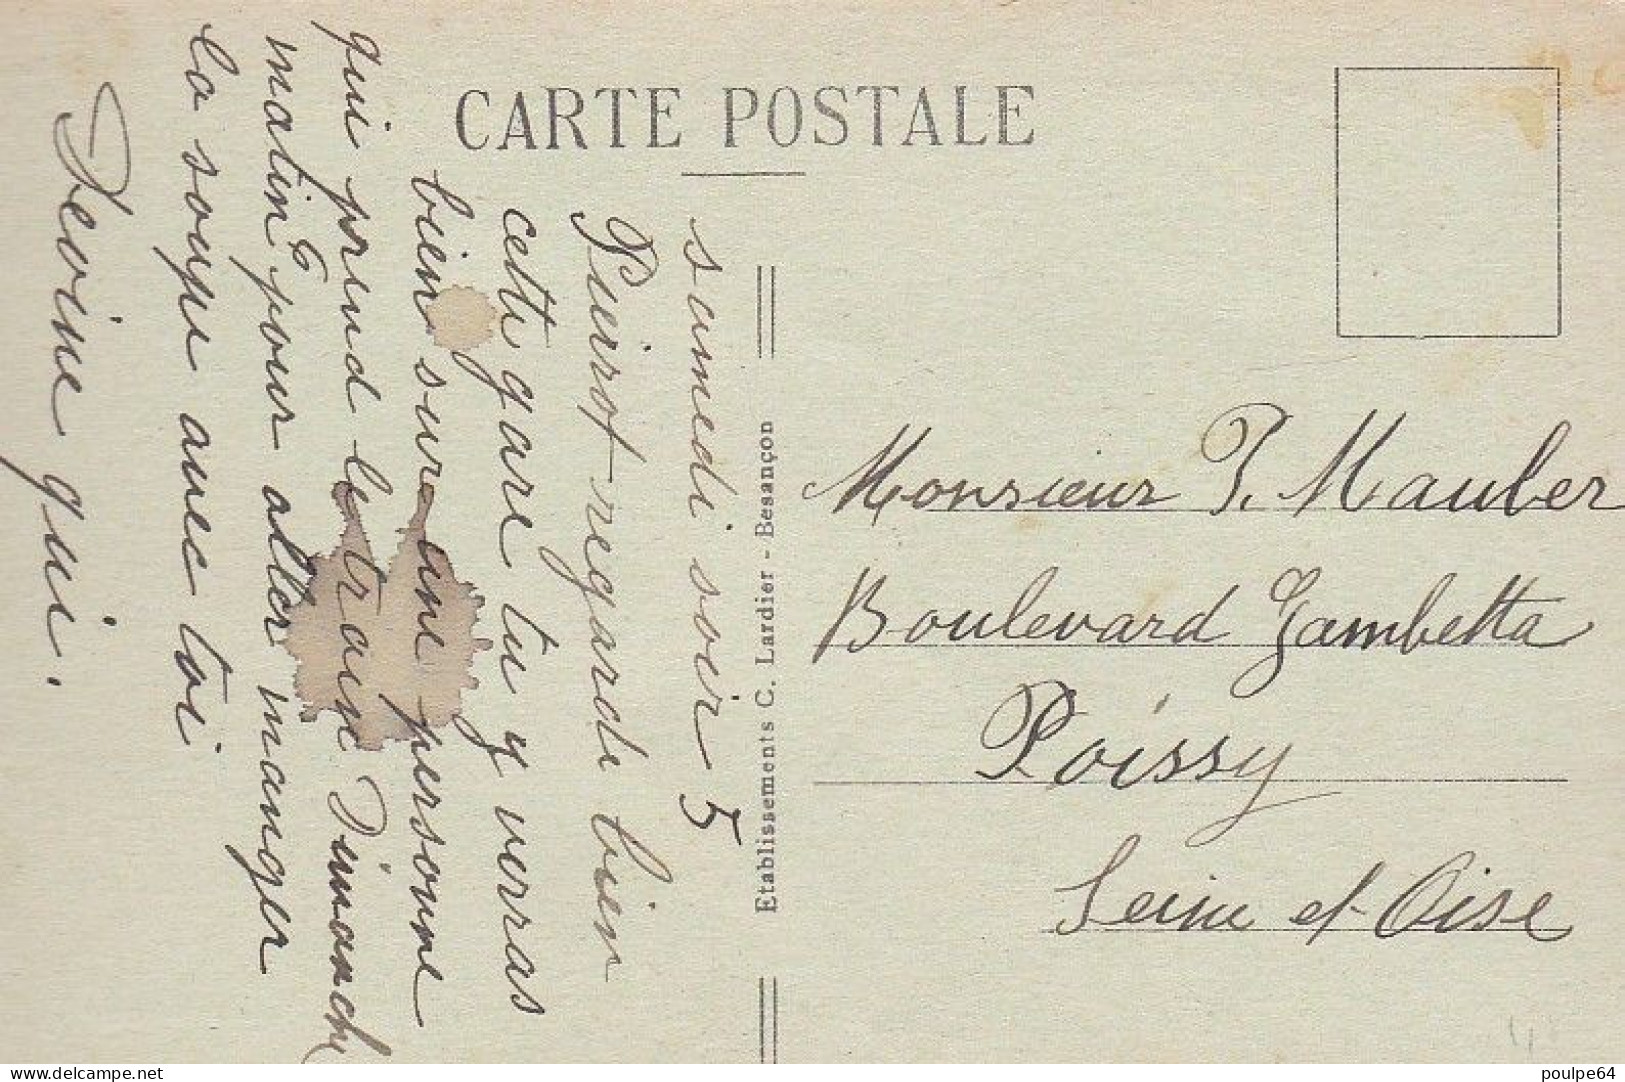 CARTE POSTALE
samedi soir 5
Pierrot regarde bien
cette gare tu y verras
bien sur une personne
qui prend le train Dimanche
matin pour aller manger
la soupe avec toi
Devine qui.
Etablissements C. Lardier - Besançon
Monsieur P. Mauber
Boulevard Gambetta
Poissy
Seine et Oise
delcampe.net
poulpe64